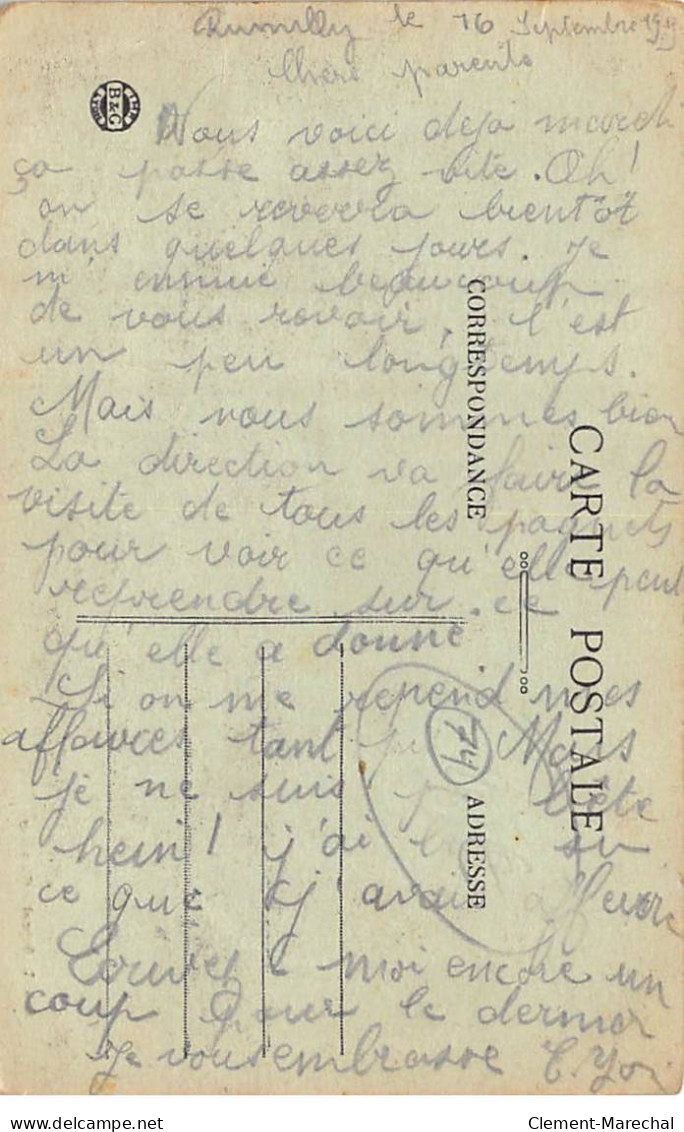 Rumilly le 16 Septembre 19
Chers parents
Nous voici deja mardi
ça passe assez vite. Oh!
on se reverra bientôt
dans quelques jours. Je
m'ennuie beaucoup
de vous revoir, c'est
un peu longtemps.
Mais nous sommes bien
La direction va faire la
visite de tous les paquets
pour voir ce qu'elle peut
reprendre sur ce
qu'elle a donné
Si on me reprend mes
affaires tant pis Mais
je ne suis bête
hein! j'ai su
ce que j'avais
moi encore un
coup pour le dernier
Je vous embrasse
CARTE POSTALE
CORRESPONDANCE
ADRESSE
74
B&G
Clement-Marechal
delcampe.net